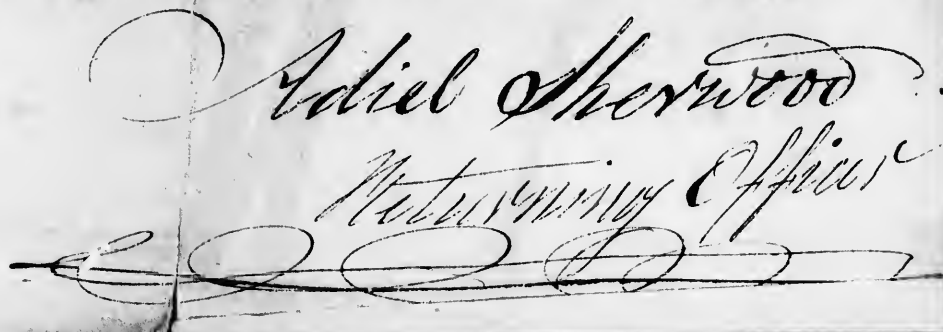 Adiel Sherwood
Returning Officer